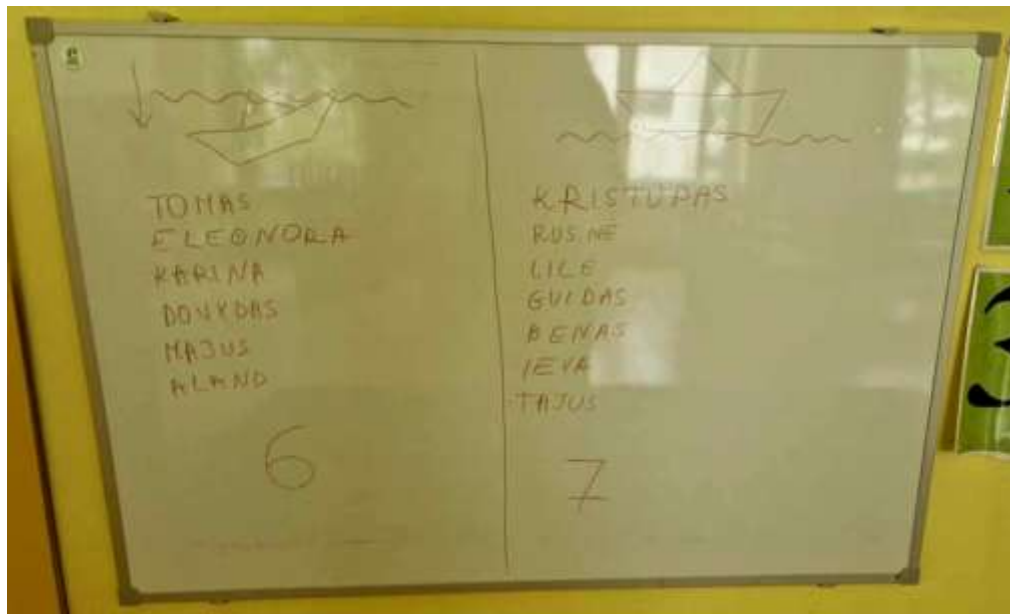 TOMAS
ELEONORA
KARINA
DOVYDAS
MAJUS
ALAND
6
KRISTUPAS
RUSNE
LILE
GUIDAS
BENAS
IEVA
TAJUS
7